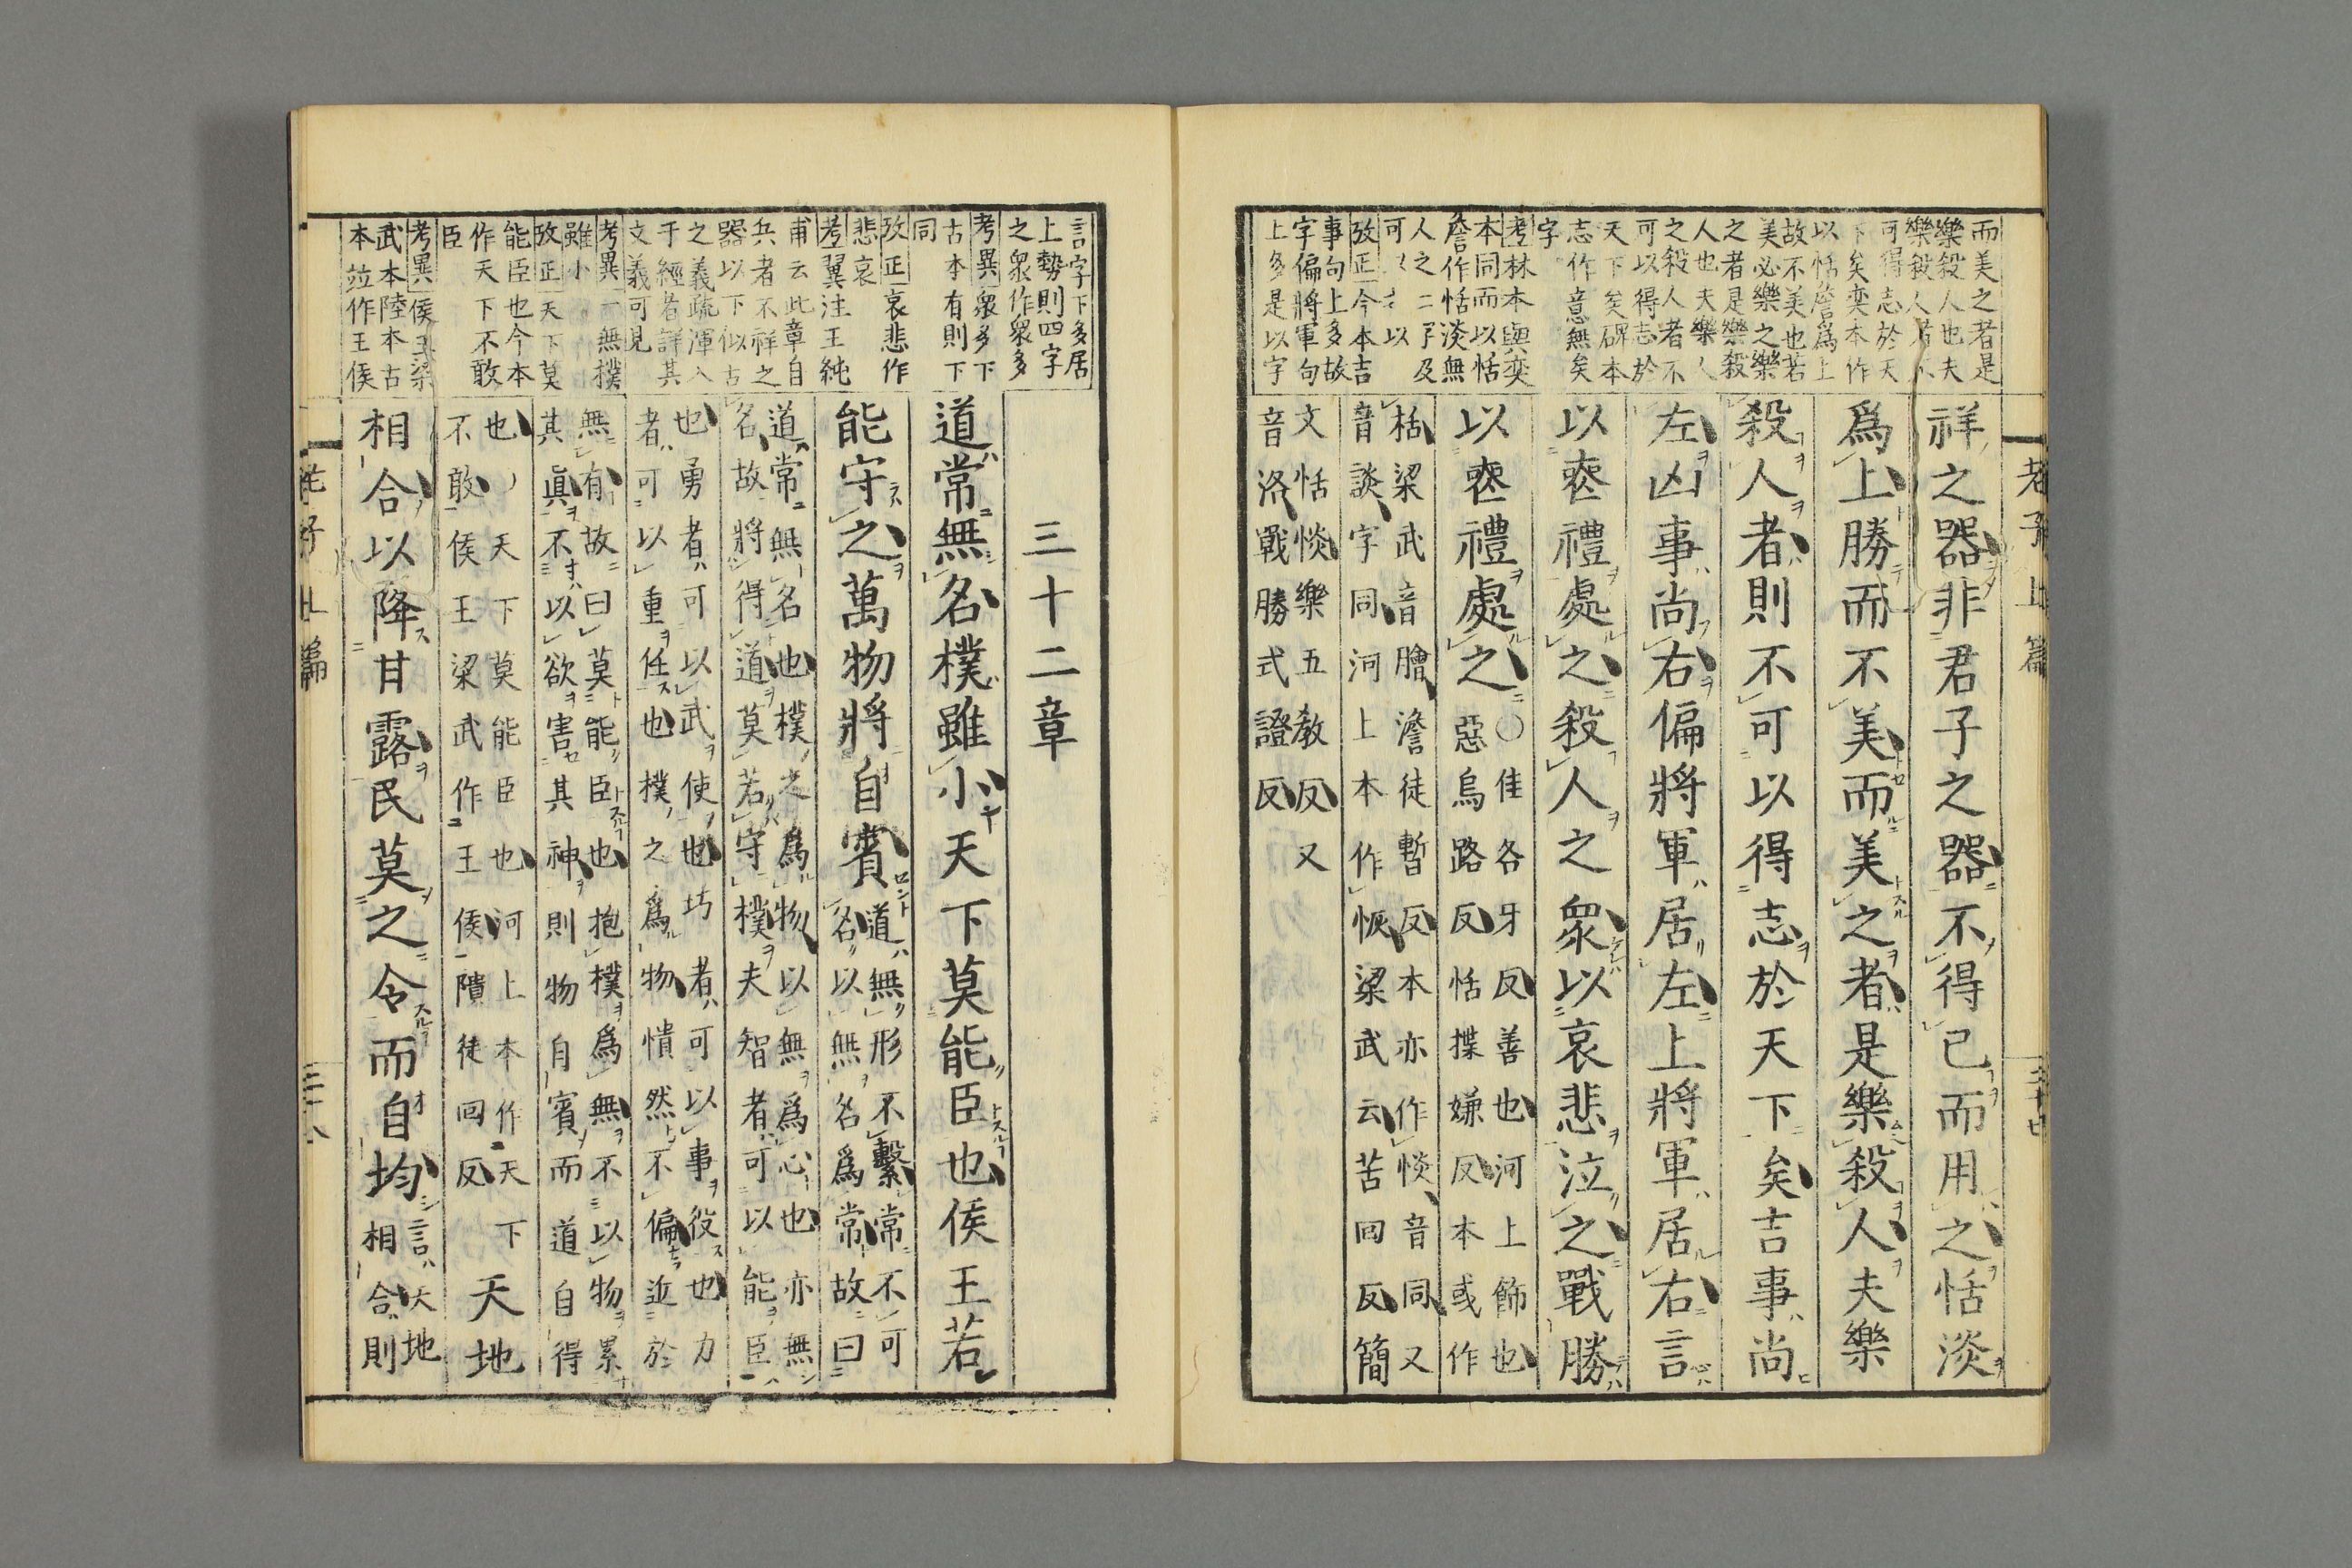 而美之者是
樂殺人也夫
樂殺人者不
可得志於天
下矣奕本作
以恬澹爲上
故不美也若
美必樂之樂
之者是樂殺
人也夫樂人
之殺人者不
可以得志於
天下矣碑本
志作意無矣
字
考林本與奕
本同而以恬
澹作恬淡無
人之二字及
可以
攷正今本吉
事句上多故
字偏將軍句
上多是以字
老子上篇
祥之器非君子之器不得已而用之恬淡
爲上勝而不美而美之者是樂殺人夫樂
殺人者則不可以得志於天下矣吉事尚
左凶事尚右偏將軍居左上將軍居右言
以喪禮處之殺人之衆以哀悲泣之戰勝
以喪禮處之
〇佳各牙反善也河上飾也
惡烏路反恬㩸嫌反本或作
栝梁武音膾澹徒暫反本亦作惔音同又
音談字同河上本作恢梁武云苦回反簡
文恬惔樂五教反又
音洛戰勝式證反
言字下多居
上勢則四字
之衆作衆多
考異衆多下
古本有則下
同
攷正哀悲作
悲哀
考翼注王純
甫云此章自
兵者不祥之
器以下似古
之義疏渾入
于經者詳其
文義可見
考異一無撲
雖小
攷正天下莫
能臣也今本
作天下不敢
臣
考異侯王梁
武本陸本古
本竝作王侯
三十二章
道常無名樸雖小天下莫能臣也侯王若
能守之萬物將自賓
道無形不繫常不可
名以無名爲常故曰
道常無名也樸之爲物以無爲心也亦無
名故將得道莫若守樸夫智者可以能臣
也勇者可以武使也巧者可以事役也力
者可以重任也樸之爲物憒然不偏近於
無有故曰莫能臣也抱樸爲無不以物累
其眞不以欲害其神則物自賓而道自得
也天下莫能臣也河上本作天下
不敢侯王梁武作王侯隤徒回反
天地
相合以降甘露民莫之令而自均
言天地
相合則